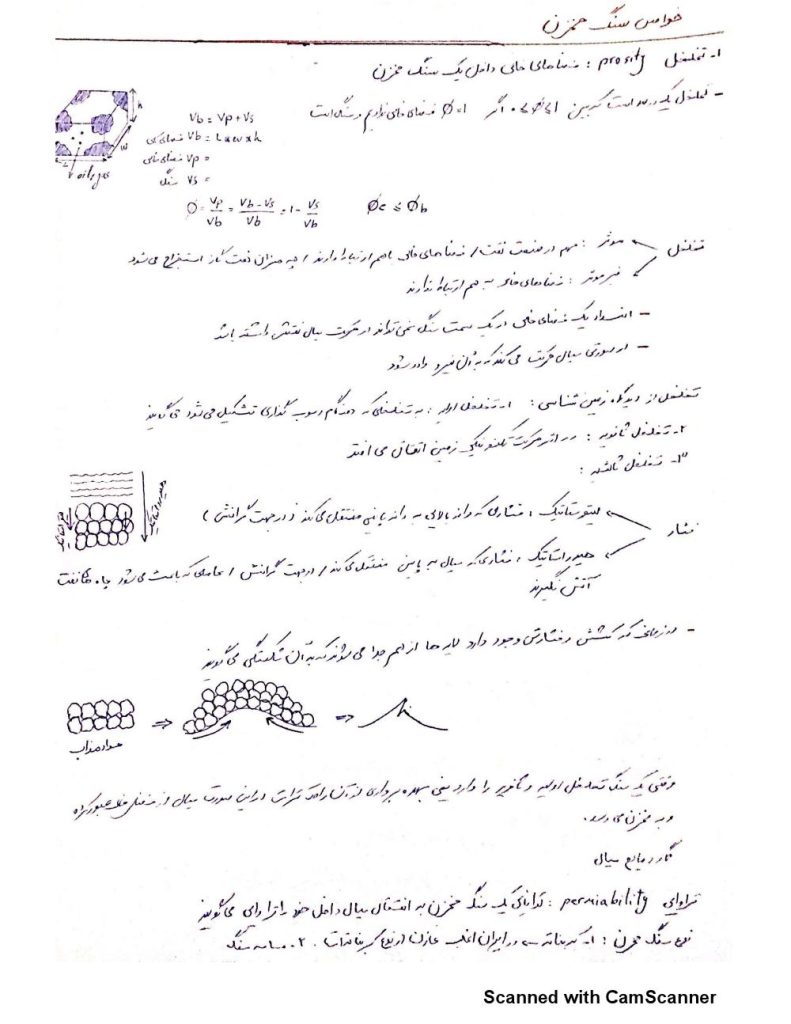 خواص سنگ مخزن
۱- تخلخل prosity : فضاهای خالی داخل یک سنگ مخزن
- تخلخل یک درصد است که بین ۰ اگر ∅ =۱ فضای خالی نداریم و سنگ است
Vb = Vp + Vs
فضای کلی Vb = L×w×h
فضای خالی Vp =
سنگ Vs =
h
w
L
∅ = Vp/Vb = Vb-Vs/Vb = 1 - Vs/Vb ∅e ≤ ∅b
تخلخل
موثر : مهم در صنعت نفت / فضاهای خالی باهم ارتباط دارند / چه میزان نفت گاز استخراج می شود
غیر موثر : فضاهای خالی به هم ارتباط ندارند
- انسداد یک فضای خالی در یک سمت سنگ نمی تواند در حرکت سیال نقش داشته باشد
- در صورتی سیال حرکت می کند که به آن نیرو وارد شود
تخلخل از دیدگاه زمین شناسی : ۱- تخلخل اولیه : به تخلخلی که هنگام رسوب گذاری تشکیل می شود می گویند
۲- تخلخل ثانویه : در اثر حرکت تکتونیکی زمین اتفاق می افتد
۳- تخلخل ثالثیه :
فشار
لیتوستاتیک : فشاری که دانه بالایی به دانه پایینی منتقل می کند ( در جهت گرانش )
هیدرواستاتیک : فشاری که سیال به پایین منتقل می کند / در جهت گرانش / عاملی که باعث می شود چاه نفت
آتش نگیرند
- در زمانی که کشش و فشارش وجود دارد لایه ها از هم جدا می شوند که به آن شکستگی می گویند
مواد مذاب
وقتی یک سنگ تخلخل اولیه و ثانویه را دارد یعنی بهره برداری از آن راحت تر است در این صورت سیال از عبور کرده
و به مخزن می رسد.
گاز و مایع سیال
تراوایی permiability : توانایی یک سنگ مخزن به انتقال سیال داخل خود را تراوایی می گویند
نوع سنگ مخزن : ۱- کربناته در ایران اغلب مخازن از نوع کربناته است . ۲- ماسه سنگ
Scanned with CamScanner